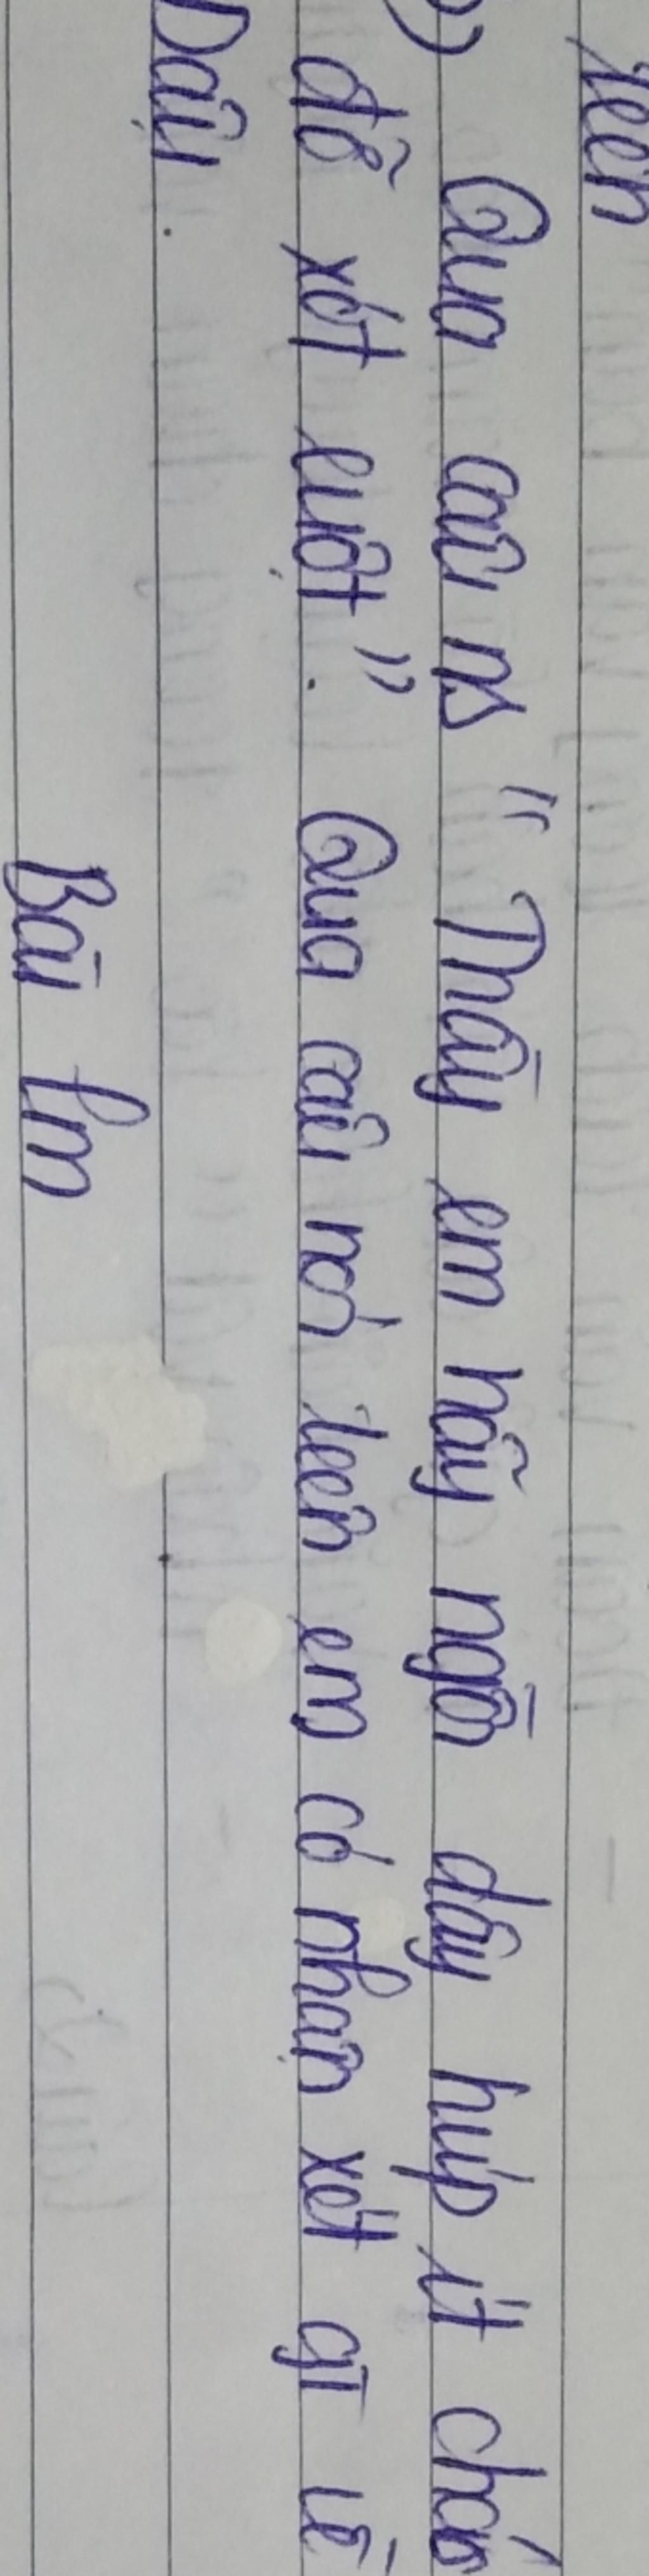 trên
e) Qua câu ns "Thầy em hãy ngồi dậy húp ít cháo
đỡ xót ruột". Qua câu nói trên em có nhận xét gì về
Dậu.
Bài lm